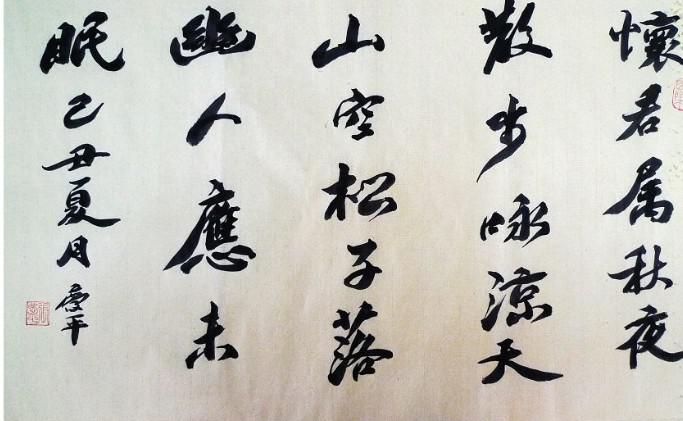 懷君属秋夜
散步咏凉天
山空松子落
幽人應未
眠己丑夏月
平